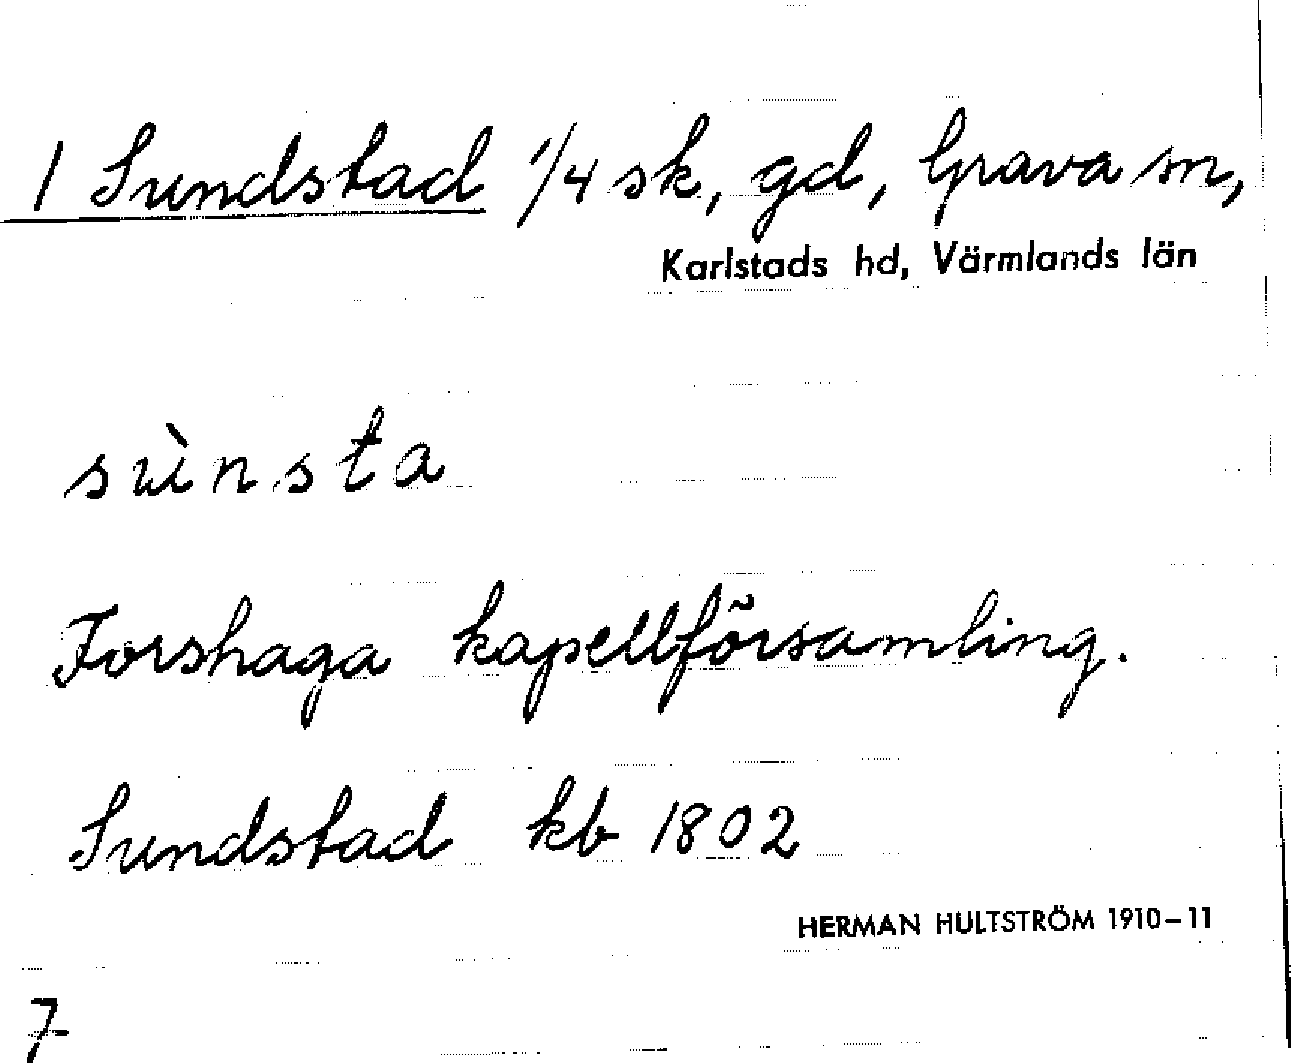 1 Sundstad 1/4 sk, gd, Grava sn,
Karlstads hd, Värmlands län
sùnsta
Forshaga kapellförsamling.
Sundstad kb 1802
HERMAN HULTSTRÖM 1910-11
7